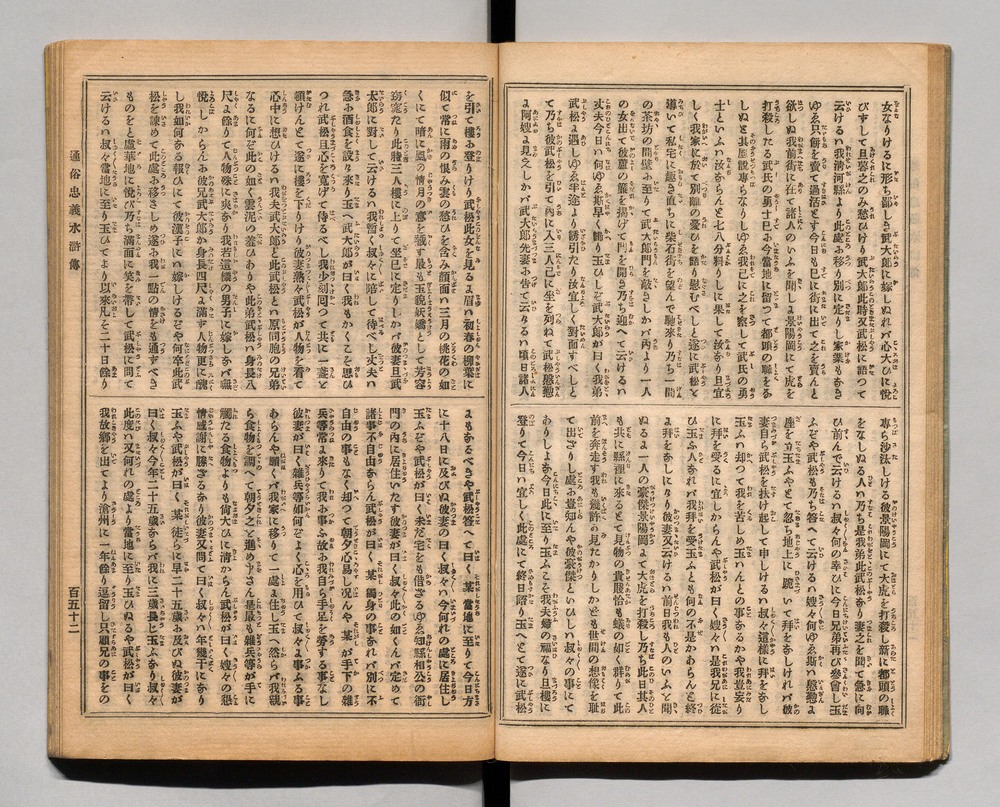 女なりけるに形ち鄙しき武大郎に嫁しぬれバ心大ひに悦
びずして旦暮之をのみ愁ひける武大郎此時又武松に語つて
云けるハ我清河縣より此處お移り別に定りし家業もあき
ゆゑ只餅を賣て過活とす今日も已に街に出て之を賣んと
欲しぬ我前街に在て諸人のいふを聞しよ景陽岡にて虎を
打殺したる武氏の勇士已お今當地に留つて都頭の職をる
しぬと其風說專らなりしゆゑ我已に之を察して武氏の勇
士といふハ汝あらんと七八分料りしに果して汝あり且宜
しく我家に於て別離の愛ひを語り慰むべしと遂に武松と
導いて私宅に趣き直ちに紫石街を望んで馳來り乃ち一間
の茶坊の間壁お到り武大郎門を敲きしかバ內より一人
の女出て彼蘆の簾を揚げて門を開き乃ち迎へて云けるハ
丈夫今日ハ何ゆゑ斯早く歸り玉ひしぞ武大郎が曰く我弟
武松よ遇しゆゑ半途より誘引たり汝宜しく對面すべしと
て乃ち彼武松を伴て內に入三人共に坐を列ねて武松慇懃
よ阿嫂よ見えしかバ武大郎先妻お告て云けるハ頃日諸人
專ら沙汰しける彼景陽岡にて大虎を打殺し新に都頭の職
をなしぬる人ハ乃ち是我弟此武松あり妻之を聞て急に向
ひ前んで云けるハ叔々何の幸ひに今日兄弟再び參會し玉
ふぞや武松も乃ち答へて云けるハ嫂々何ゆゑ斯く慇懃よ
座を立玉ふやとて忽ち地上に跪いて拜をあしけれバ彼
妻自ら武松を扶け起して申しけるハ叔々這樣に拜をあし
玉ふハ却つて我を苦しめ玉ハんとの事あるかや我豈妄り
に拜を受るに宜しからんや武松が曰く嫂々ハ是我兄に從
ひ玉ふ人あれバ我拜を受玉ふとも何の不是かあらんと終
よ拜をあし訖りにき彼妻又云けるハ前日我も人のいふと聞
ぬるよ一人の豪傑景陽岡よて大虎を打殺し乃ち此日其人
も共に縣裡に來るとて見物の貴賤恰も蟻の如く群りて此
前を奔走す我も幾許の見たかりしかども世間の想像を耻
て出ざりし處お豈知んや彼豪傑といひしハ叔々の事にて
ありしよあ今日此に至り玉ふこそ我夫婦の福なり且樓に
登りて今日ハ宜しく此處にて終日語り玉へとて遂に武松
を引て樓お登りけり武松此女を見るよ眉ハ初春の柳葉に
似て常に雨の恨み雲の愁ひを含み顏面ハ三月の桃花の如
くにて暗に風の情月の意を藏す最も玉貌妖嬌として芳容
窈窕たり此時三人樓に上りて坐已に定りしかバ彼妻旦武
太郎に對して云けるハ我暫く叔々に賠して待べし丈夫ハ
急お酒食を設け來り玉へ武大郎が曰く我もかくこそ思ひ
つれ武松且心を寬げて侍るべし我少刻回つて共に一盞と
傾けんとて遂に樓を下りけり彼妻熟々武松が人物を看て
心中に想ひけるハ我夫武大郎と此武松とハ原同胞の兄弟
なるに何ぞ此の如く雲泥の差ひありや此弟武松ハ身長八
尺よ餘りて人物殊に爽あり我若這樣の男子に嫁しあバ無
悅しからんお彼兄武大郎か身長四尺よ滿ず人物更に醜
し我如何ある報ひにて彼漢子にハ嫁しけるぞや何卒此武
松を諫めて此處お移きしめ遂お我一點の情をも通すべき
ものをと虛華地に悅び乃ち滿面に笑を帶して武松に問て
云けるハ叔々當地に至り玉ひてより以來凡そ二十日餘り
よもあるべきや武松答へて曰く某當地に至りて今日方
に十八日に及びぬ彼妻の曰く叔々ハ今何れの處に居住し
玉ふぞや武松が曰く未だ宅をも借ざるゆゑ知縣相公の衙
門の內に居住いたす彼妻が曰く叔々此の如くあらんバ定めて
諸事不自由あらん武松が曰く某獨身の事あれバ別に不
自由の事もなく却つて朝夕心易し况んや某が手下の雜
兵等常よ來りて我お事ふ故お我自ら手足を勞する事なし
彼妻が曰く雜兵等如何ぞよく心を用ひて叔々よ事ふる事
あらんや願くバ我家に移り一處よ住し玉へ然らバ我親
ら食物を調へて朝夕之と進め申さん是最も雜兵等が手に
觸たる食物よりも倘大ひに淸からん武松が曰く嫂々の懇
情感謝に勝ざるあり彼妻又問て曰く叔々ハ年幾干にあり
玉ふや武松が曰く某徒らに早二十五歲お及びぬ彼妻が
曰く叔々今年二十五歲あらバ我に三歲長じ玉ふあり叔々
此度ハ又何れの處より當地に至り玉ひぬるや武松が曰く
我故鄕を出てより滄州に一年餘り逗留し只顧兄の事をの
通俗忠義水滸傳
百五十二